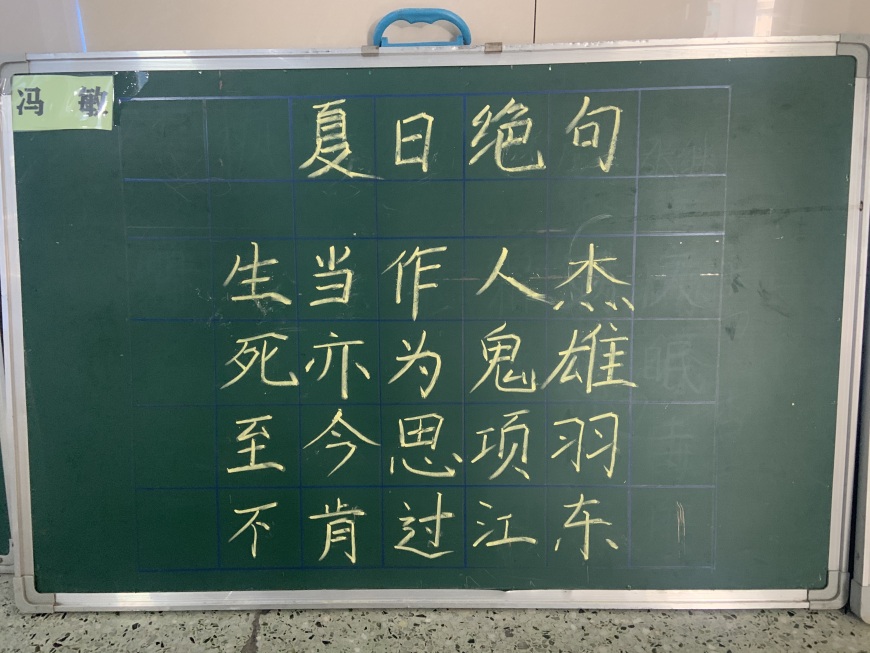 冯 敏
夏日绝句
生当作人杰
死亦为鬼雄
至今思项羽
不肯过江东